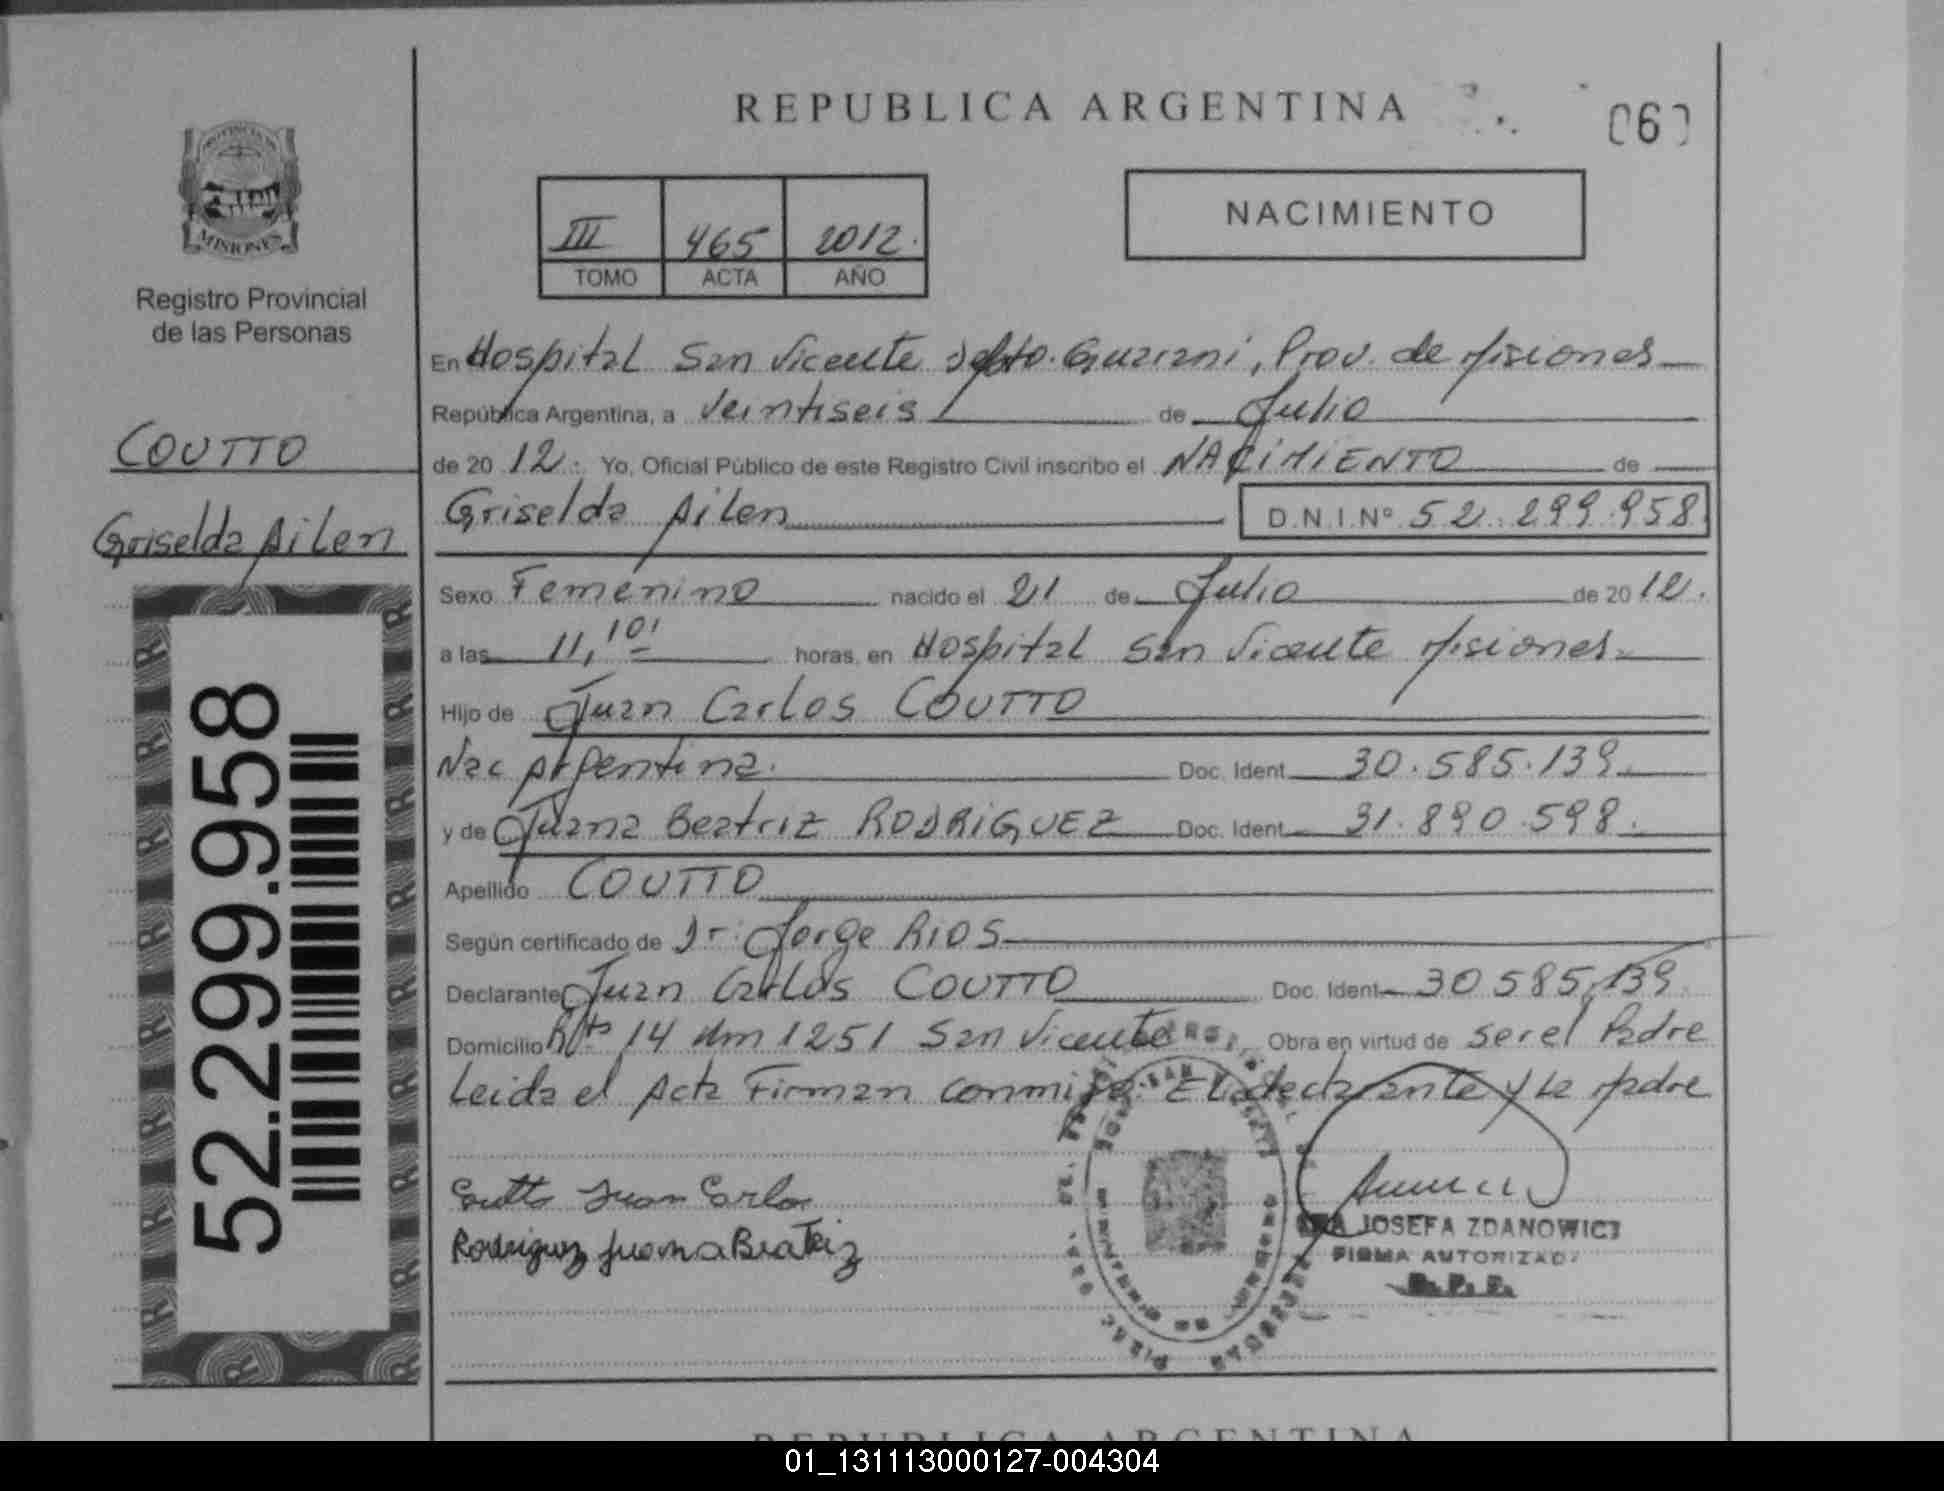 REPUBLICA ARGENTINA
060
MISIONES
Registro Provincial
de las Personas
III 465 2012.
TOMO ACTA AÑO
NACIMIENTO
COUTTO
Griselda Ailen
52.299.958
En Hospital San Vicente Depto. Guarani, Prov. de Misiones
República Argentina, a Veintiseis de Julio
de 20 12. Yo, Oficial Público de este Registro Civil inscribo el NACIMIENTO de
Griselda Ailen D.N.I.Nº 52.299.958
Sexo Femenino nacido el 21 de Julio de 20 12.
a las 11,10' horas, en Hospital San Vicente Misiones.
Hijo de Juan Carlos COUTTO
Nac Argentina. Doc. Ident. 30.585.139.
y de Juana Beatriz RODRIGUEZ Doc. Ident. 31.890.598.
Apellido COUTTO
Según certificado de Dr. Jorge RIOS
Declarante Juan Carlos COUTTO Doc. Ident. 30 585,139
Domicilio Rta 14 Km 1251 San Vicente Obra en virtud de ser el Padre
Leida el Acta Firman conmigo. El declarante y La Madre
Coutto Juan Carlos
Rodriguez Juana Beatriz
JOSEFA ZDANOWICZ
FIRMA AUTORIZADA
R.P.P.
REPUBLICA ARGENTINA
01_131113000127-004304